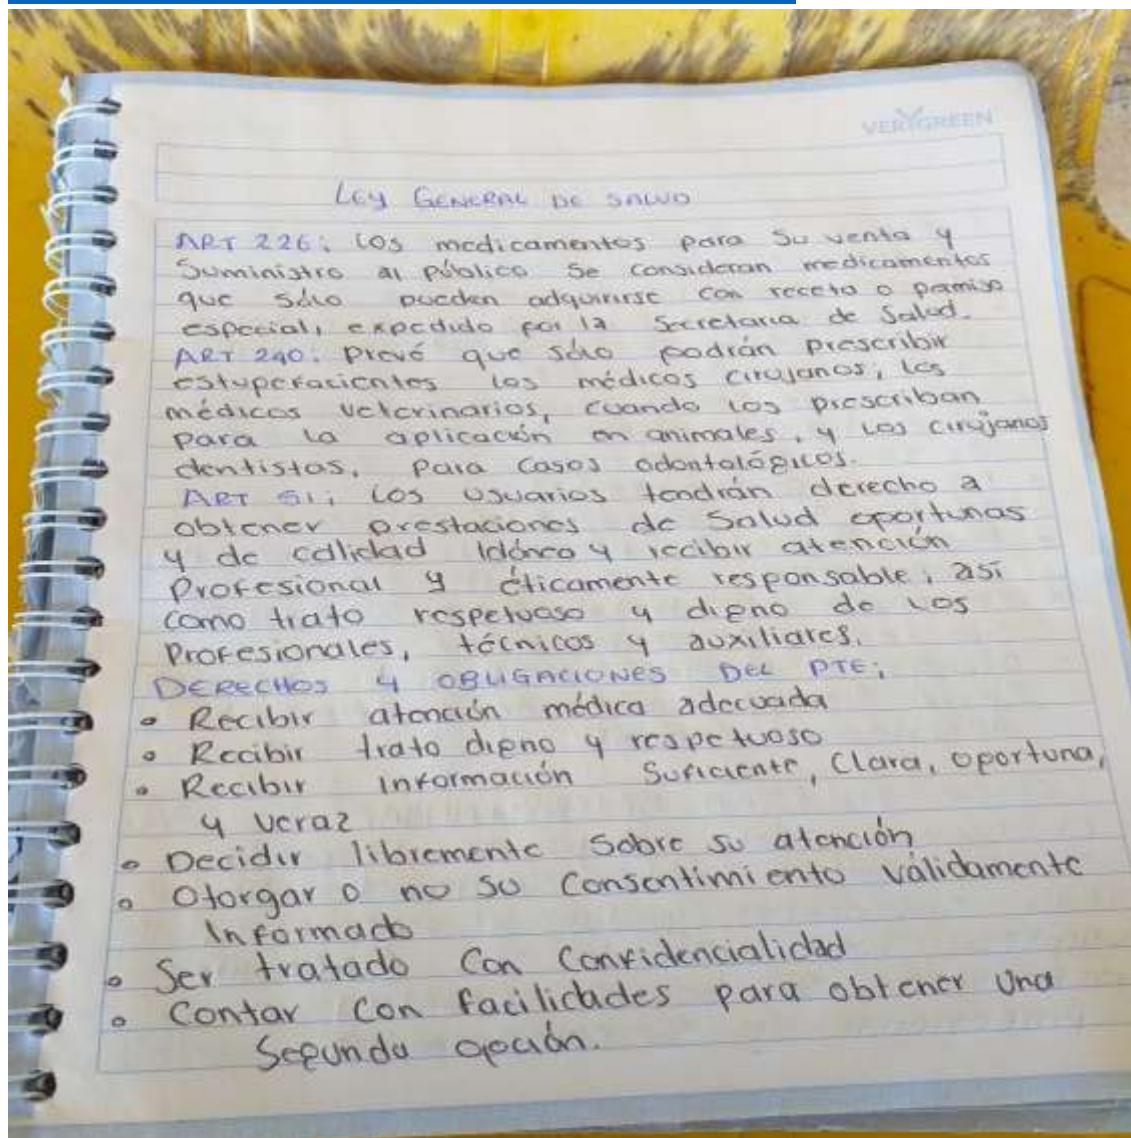 VERYGREEN
LEY GENERAL DE SALUD
ART 226: Los medicamentos para su venta y
Suministro al público se consideran medicamentos
que sólo pueden adquirirse con receta o permiso
especial, expedido por la Secretaria de Salud.
ART 240: Prevé que sólo podrán prescribir
estupefacientes los médicos cirujanos, los
médicos veterinarios, cuando los prescriban
para la aplicación en animales, y los cirujanos
dentistas, para casos odontológicos.
ART 51: Los usuarios tendrán derecho a
obtener prestaciones de Salud oportunas
y de calidad idónea y recibir atención
Profesional y éticamente responsable, así
como trato respetuoso y digno de los
Profesionales, técnicos y auxiliares.
DERECHOS Y OBLIGACIONES DEL PTE:
• Recibir atención médica adecuada
• Recibir trato digno y respetuoso
• Recibir información Suficiente, Clara, oportuna,
y veraz
• Decidir libremente Sobre su atención
• Otorgar o no su Consentimiento válidamente
Informado
• Ser tratado Con Confidencialidad
• Contar Con facilidades para obtener una
Segunda opción.